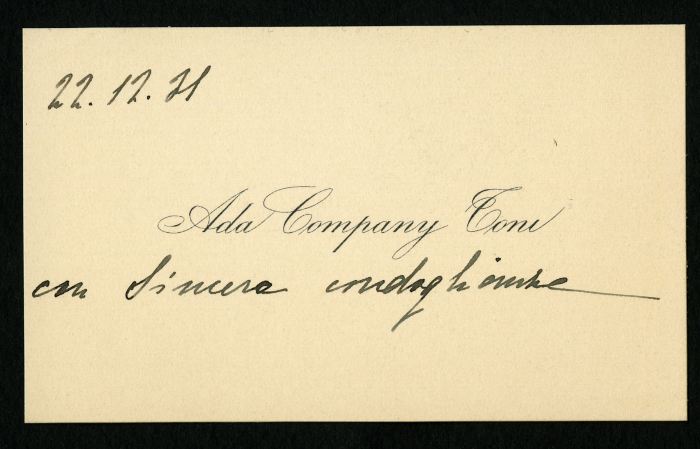 22.12.31
Ada Company Toni
con sincere condoglianze